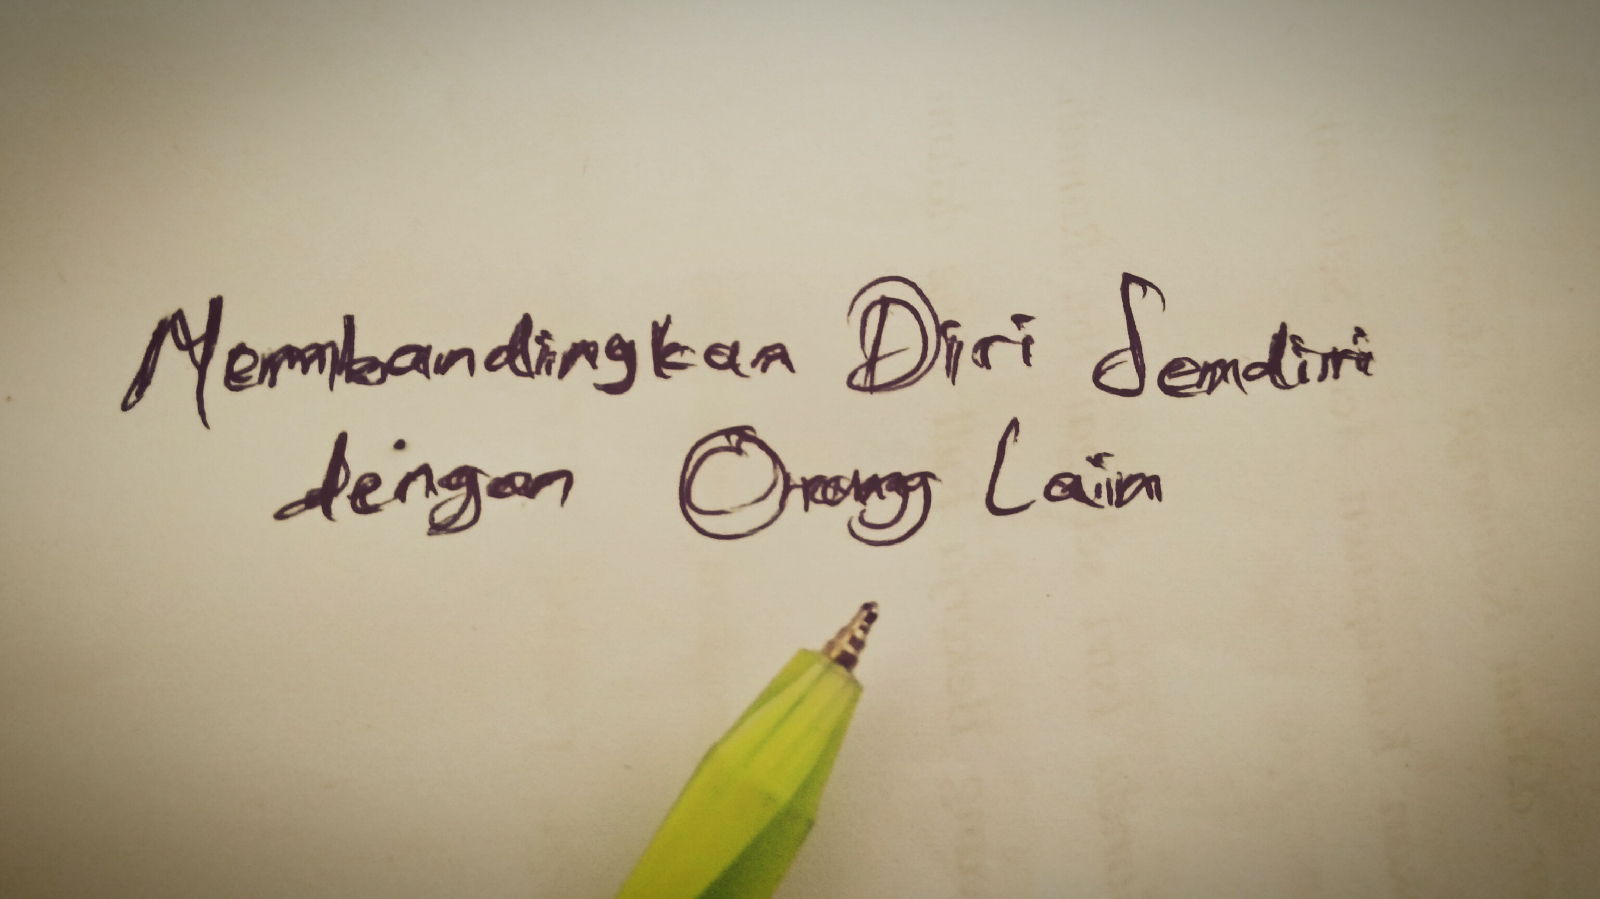 Membandingkan Diri Sendiri
dengan Orang Lain